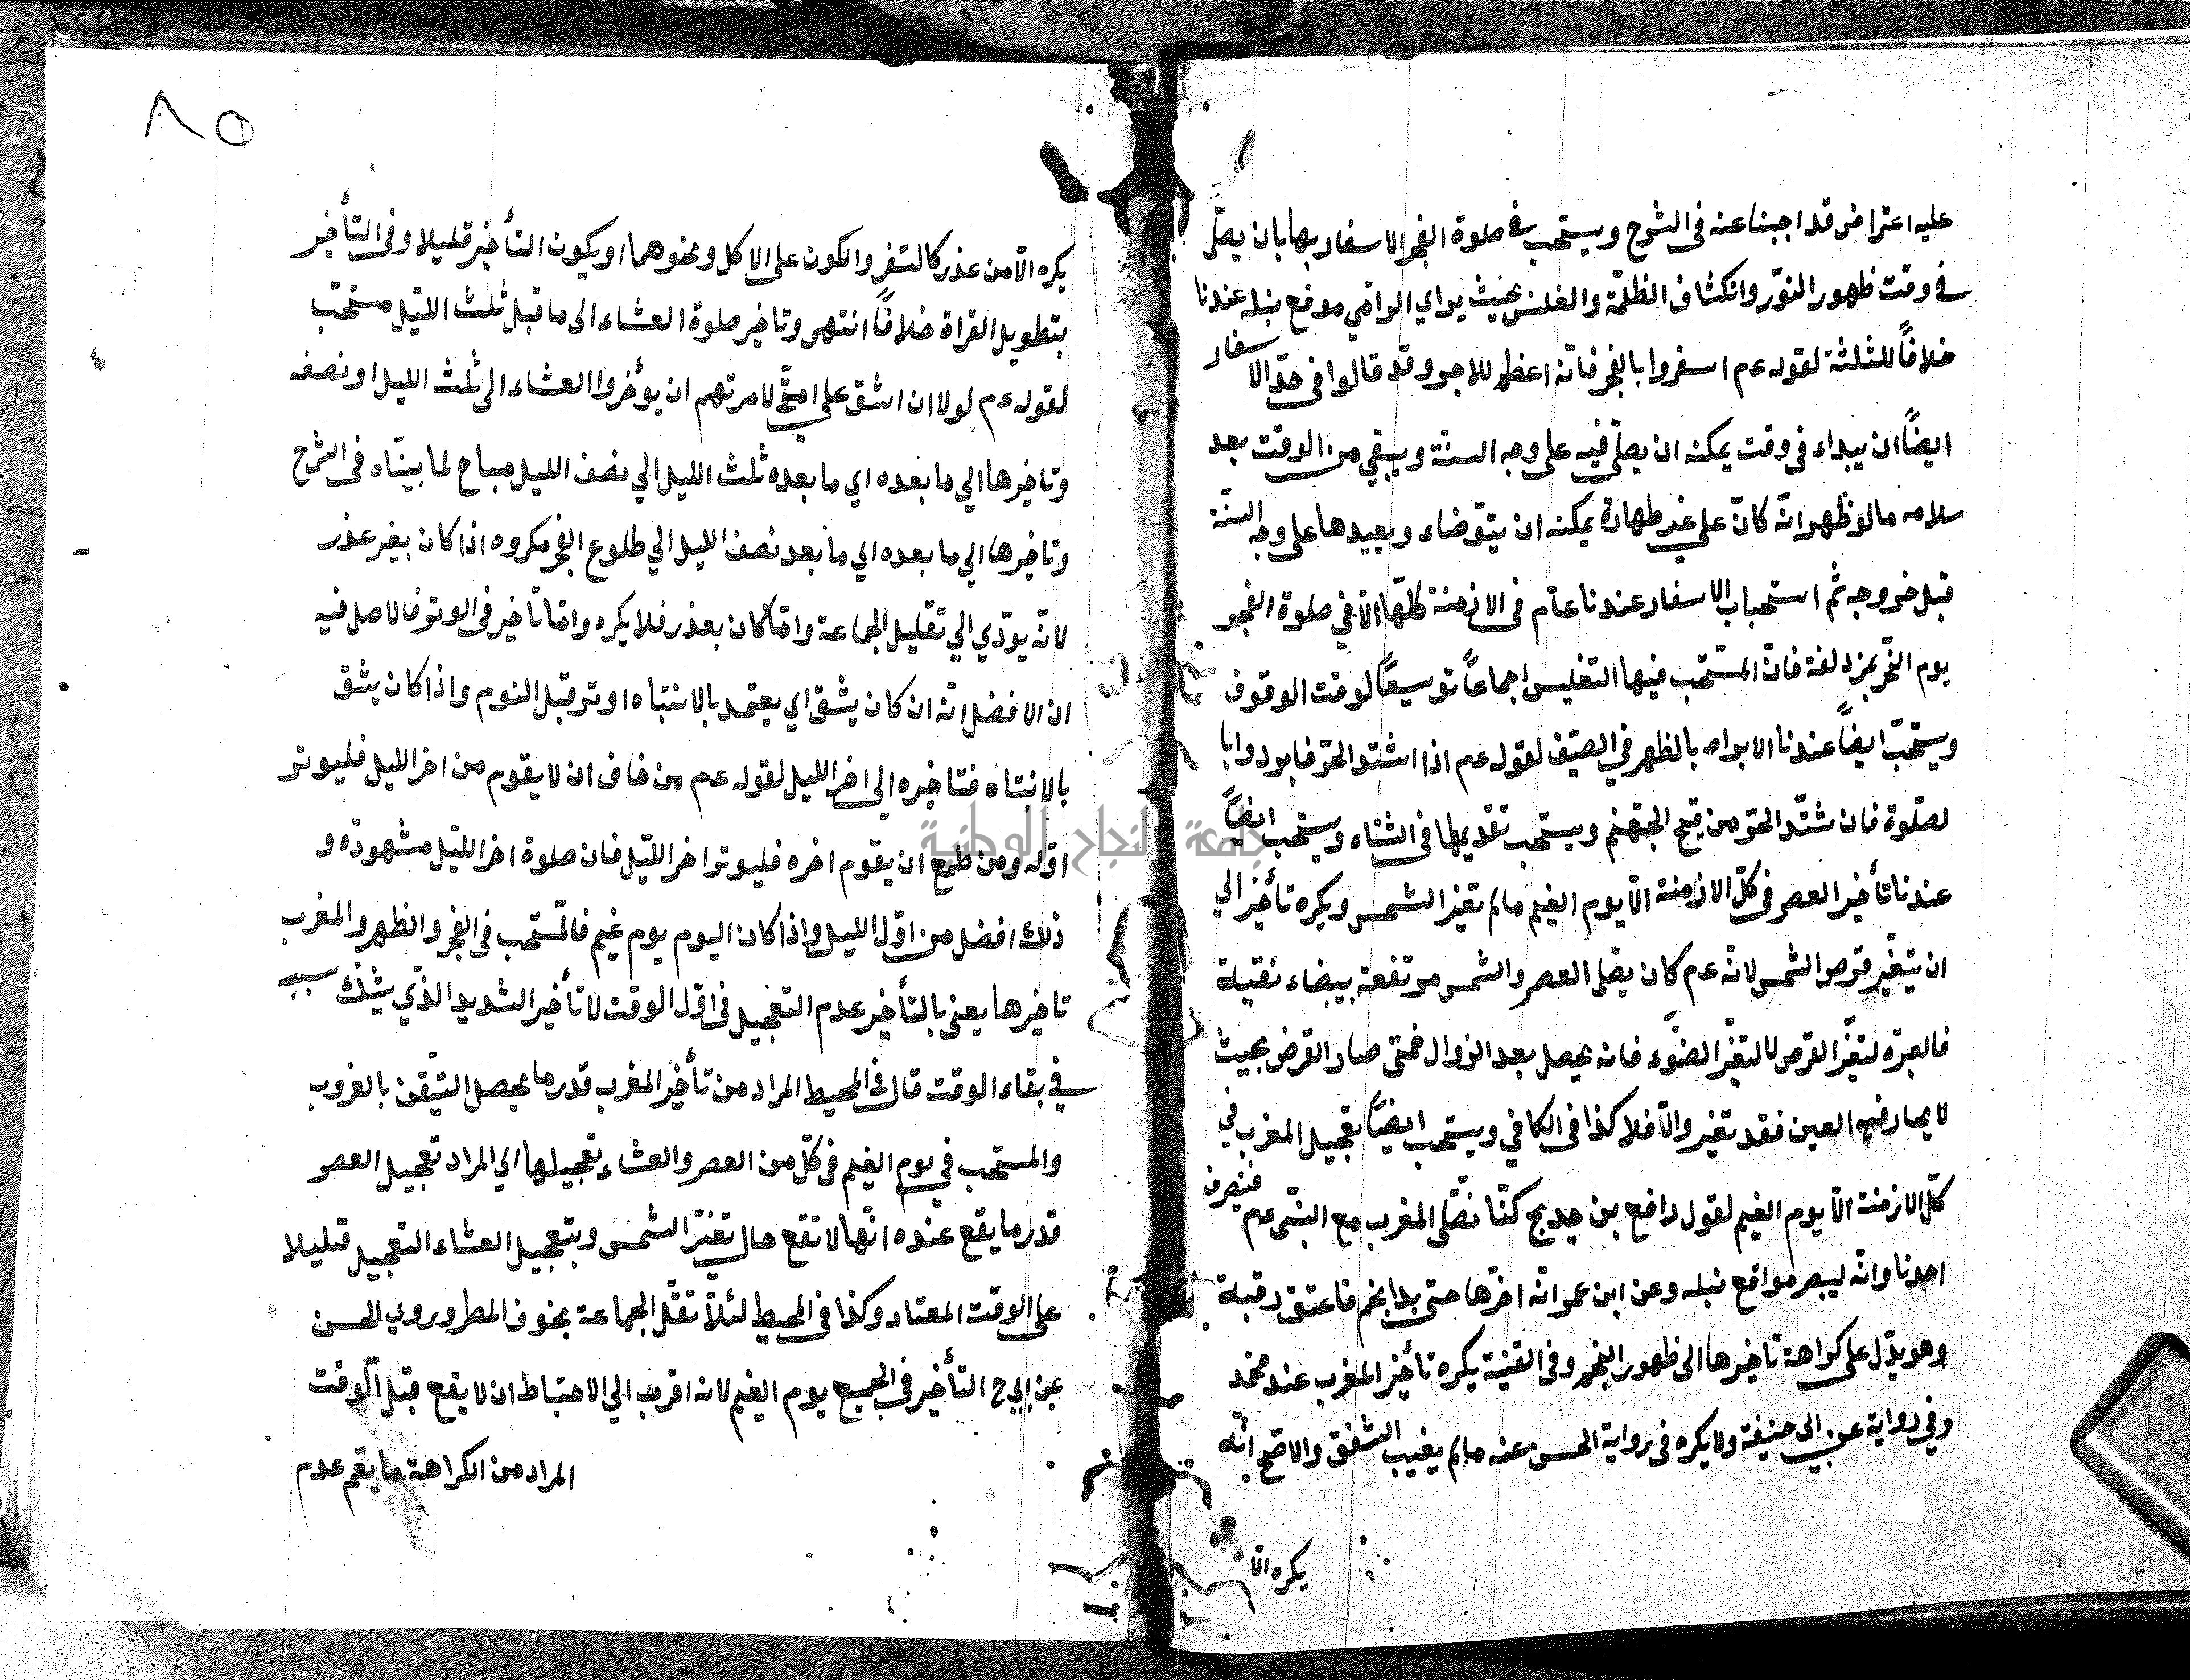 عليه اعتراض قد اجبنا عنه فى الشرح ويستحب فى صلوة الفجر الاسفار بها بان يصلّى
فى وقت ظهور النوّر وانكشاف الظلمة والغلس بحيث يراي الرامي موقع نبله عندنا
خلافاً للثلثة لقوله عم اسفروا بالفجر فانّه اعظم للاجر وقد قالوا فى حدّ الاسفار
ايضاً ان يبداء فى وقت يمكنه ان يصلّي فيه على وجه السنّة ويبقي من الوقت بعد
سلامه مالو ظهر انّه كان على غير طهارة يمكنه ان يتوّضاء ويعيدها على وجه السنّة
قبل خروجه ثم استحباب الاسفار عندنا عام فى الازمنة كلّها الاّ في صلوة الفجر
يوم النحر بمزدلفة فانّ المستحّب فيها التغليس اجماعاً توسيعاً لوقت الوقوف
ويستحّب ايضاً عندنا الابراد بالظهر في الصيّف لقوله عم اذا اشتد الحرّ فابردوا با
لصلّوة فان شتّد الحرّ من قيح الجهنّم ويستحب تقديمها فى الشتاء ويستحب ايضاً
عندنا تأخير العصر فى كلّ الازمنة الاّ يوم الغيم مالم تغير الشمس ويكره تأخير الي
ان يتغيّر قرص الشمس لانّه عم كان يصّلى العصر والشمس مرتفعة بيضاء نقيّة
فالعبرة لتغيّر القرص لا لتغيّر الضوّء فانه يحصل بعد الزوال فمتى صار القرض بحيث
لا يحار فيه العين فقد تغير والاّ فلا كذا فى الكافي ويستحب ايضاً تعجيل المغرب في
كلّ الازمنة الاّ يوم الغيم لقول رافع بن خديج كنّا نصّلى المغرب مع النبّى عم فينصرف
احدنا وانّه ليبصر مواقع نبله وعن ابن عمر انّه اخرّها حتى بدا نجم فاعتق رقبة
وهو يدّل على كراهة تاخيرها الى ظهور النجم وفى القنية يكره تأخير المغرب عند محمّد
وفي رواية عن ابى حنيفة ولا يكره فى رواية الحسن عنه مالم يغيب الشفق والاصّح انّه
يكره الاّ
٨٥
يكره الاّ من عذر كالسّفر والكون على الاكل ونحوهما او يكون التأخير قليلا وفى التأخير
بتطويل القراة خلافاً انتهى وتاخير صلوة العشاء الى ما قبل ثلث الليّل مستحّب
لقوله عم لولا ان اشق على امتّي لامرتهم ان يؤخروا العشاء الى ثلث الليل او نصفه
وتاخيرها الي ما بعده اي ما بعده ثلث الليل الي نصف الليل مباح لما بينّاه فى الشرح
وتاخيرها الي ما بعده اي ما بعد نصف الليل الي طلوع الفجر مكروه اذا كان بغير عذر
لانّه يودّي الي تقليل الجماعة وامّا كان بعذر فلا يكره وامّا تاخير فى الوتر فالاصل فيه
ان الافضل انّه ان كان يشق اي يعتمد بالانتباه اوتر قبل النوم واذا كان يشق
بالانتباه فتاخيره الى اخر الليل لقوله عم من خاف ان لا يقوم من اخر الليل فليوتر
اوّله ومن طمع ان يقوم اخره فليوتر اخر الليّل فان صلوة اخر الليّل مشهودّه و
ذلك افضل من اوّل الليل واذا كان اليوم يوم غيم فالمّستحب فى الفجر والظهر والمغرب
تاخيرها يعنى بالتأخير عدم التعجيل فى اوّل الوقت لا تأخير الشديد الذّي يشكّ سببه
في بقاء الوقت قال فى المحيط المراد من تأخير المغرب قدر ما يحصل التيّقن بالغروب
والمستحب في يوم الغيم فى كلّ من العصر والعشاء تعجيلها اي المراد تعجيل العصر
قدر ما يقع عنده انّها لا تقع حال تغيّر الشمس وبتعجيل العشاء التعجيل قليلا
على الوقت المعتاد وكذا فى المحيط لئلاّ تقلّ الجماعة بخوف المطر وروي الحسن
عن ابي ح التأخير فى الجميع يوم الغيم لانه اقرب الي الاحتياط ان لا يقع قبل الوّقت
المراد من الكراهة ما يعّم عدم
جامعة النجاح الوطنية